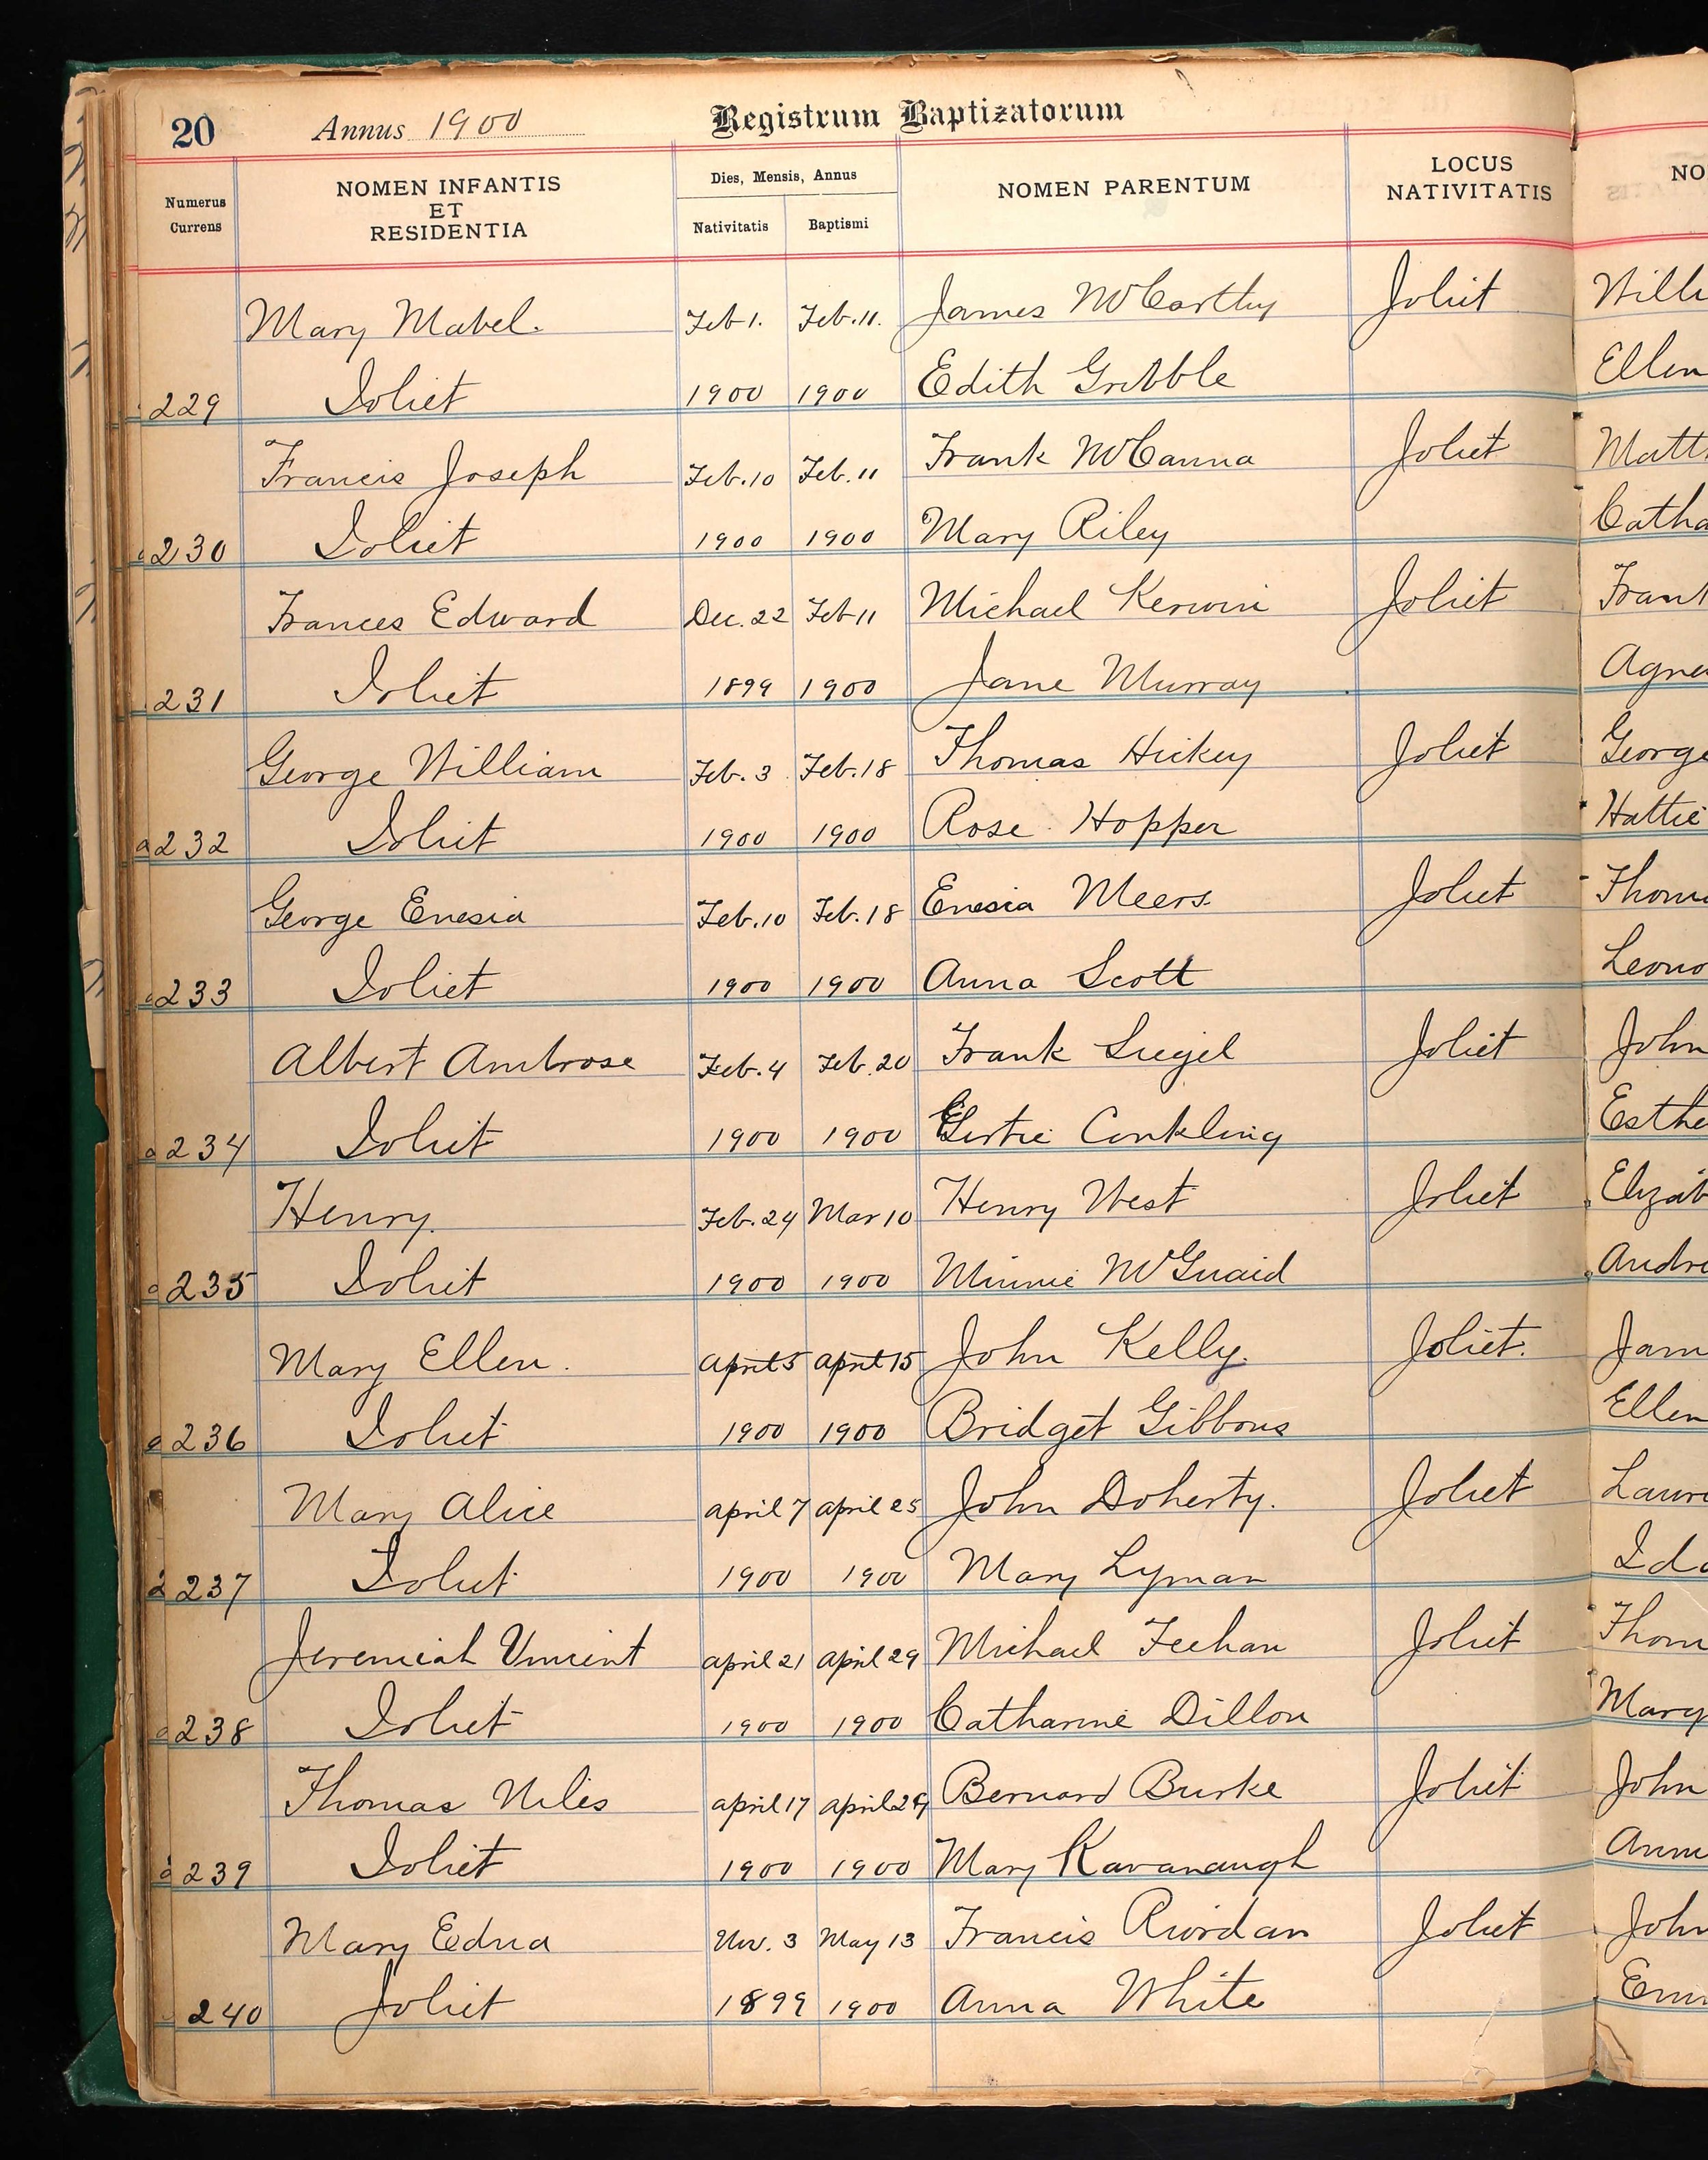 20 Annus 1900 Registrum Baptizatorum
Numerus Currens
NOMEN INFANTIS ET RESIDENTIA
Dies, Mensis, Annus
Nativitatis Baptismi
NOMEN PARENTUM
LOCUS NATIVITATIS
NO
Mary Mabel. Feb 1. Feb. 11. James McCarthy Joliet Willi
229 Joliet 1900 1900 Edith Gribble Ellen
Francis Joseph Feb. 10 Feb. 11 Frank McCanna Joliet Matt
230 Joliet 1900 1900 Mary Riley Catha
Frances Edward Dec. 22 Feb 11 Michael Kerwin Joliet Frank
231 Joliet 1899 1900 Jane Murray Agne
George William Feb. 3 Feb. 18 Thomas Hickey Joliet George
232 Joliet 1900 1900 Rose Hopper Hattie
George Enesia Feb. 10 Feb. 18 Enesia Meers Joliet Thom
233 Joliet 1900 1900 Anna Scott Leono
Albert Ambrose Feb. 4 Feb. 20 Frank Siegel Joliet John
234 Joliet 1900 1900 Gertie Conkling Esthe
Henry. Feb. 24 Mar 10 Henry West Joliet Elizab
235 Joliet 1900 1900 Minnie McGuaid Andre
Mary Ellen. April 5 April 15 John Kelly. Joliet. Jam
236 Joliet 1900 1900 Bridget Gibbons Ellen
Mary Alice April 7 April 25 John Doherty. Joliet Laure
237 Joliet 1900 1900 Mary Lyman Ida
Jeremiah Vincent April 21 April 29 Michael Feehan Joliet Thom
238 Joliet 1900 1900 Catharine Dillon Mary
Thomas Niles April 17 April 29 Bernard Burke Joliet John
239 Joliet 1900 1900 Mary Kavanaugh Anna
Mary Edna Nov. 3 May 13 Francis Riordan Joliet John
240 Joliet 1899 1900 Anna White Em